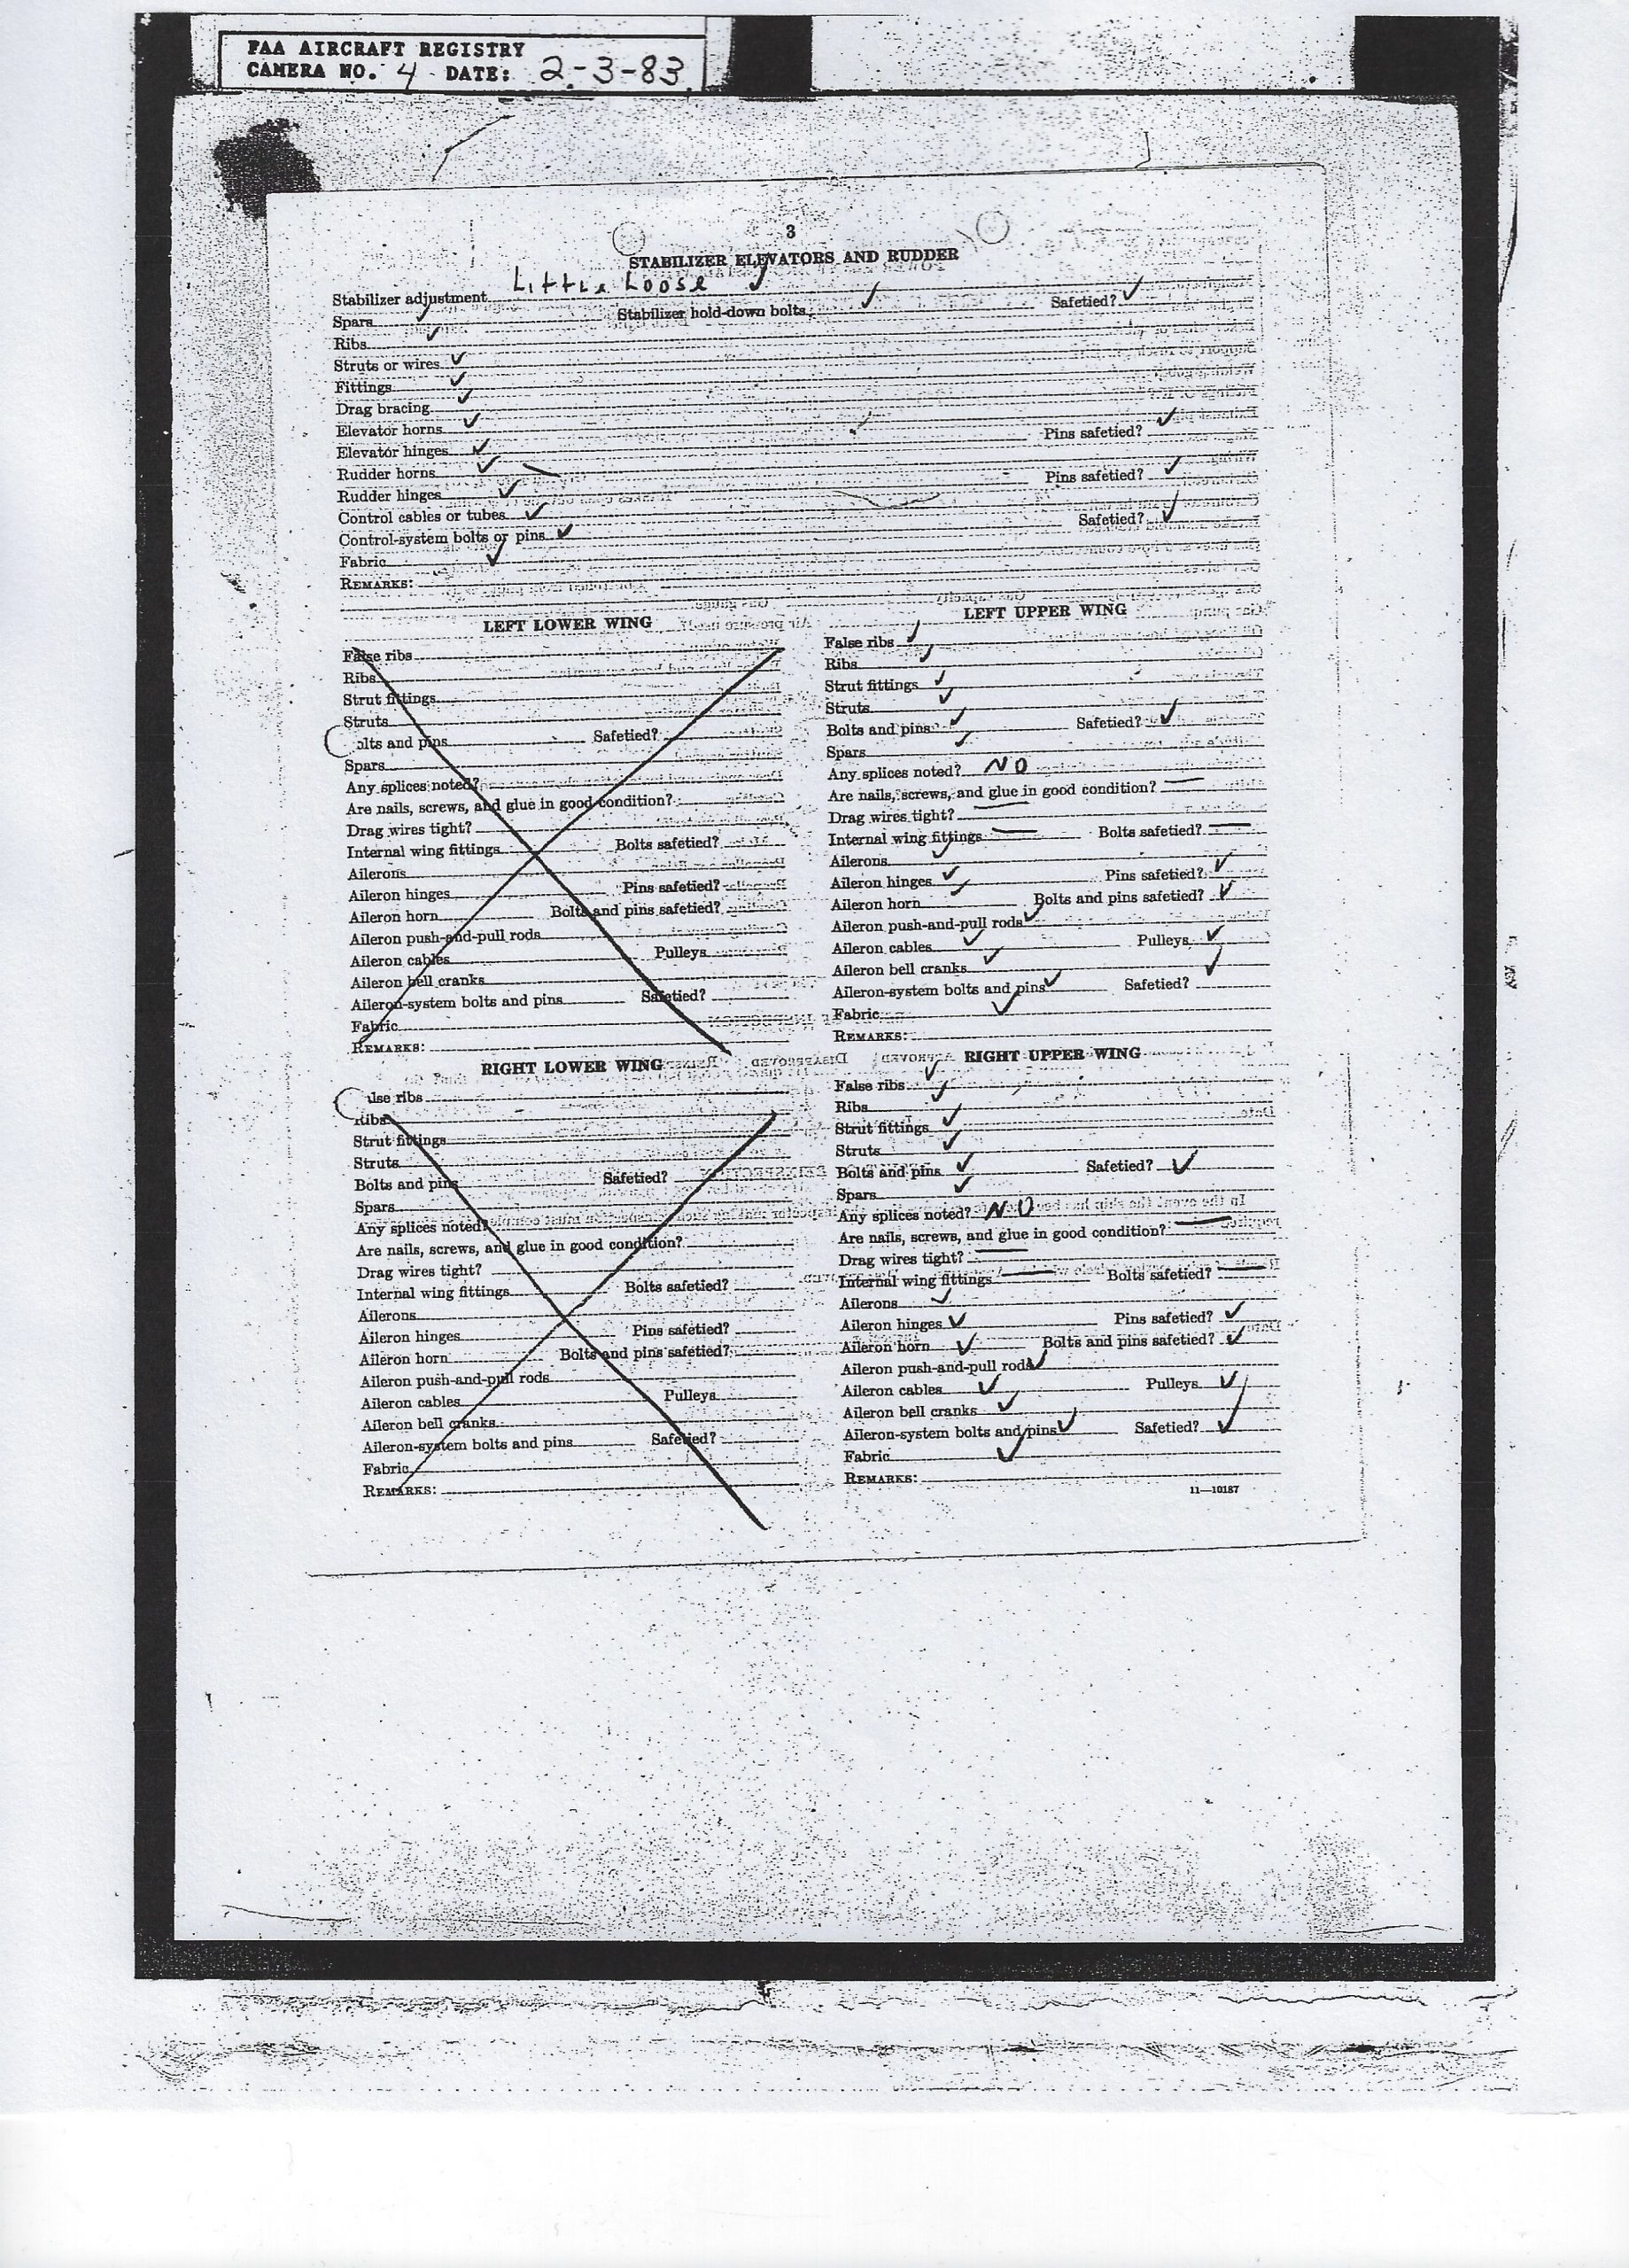 FAA AIRCRAFT REGISTRY
CAMERA NO. 4 DATE: 2-3-83
3
STABILIZER ELEVATORS AND RUDDER
Stabilizer adjustment Little Loose ✓
Spars ✓ Stabilizer hold-down bolts ✓ Safetied? ✓
Ribs ✓
Struts or wires ✓
Fittings ✓
Drag bracing ✓
Elevator horns ✓ Pins safetied? ✓
Elevator hinges ✓
Rudder horns ✓ Pins safetied? ✓
Rudder hinges ✓
Control cables or tubes ✓ Safetied? ✓
Control-system bolts or pins ✓
Fabric ✓
REMARKS:
LEFT LOWER WING
False ribs
Ribs
Strut fittings
Struts
olts and pins Safetied?
Spars
Any splices noted?
Are nails, screws, and glue in good condition?
Drag wires tight?
Internal wing fittings Bolts safetied?
Ailerons
Aileron hinges Pins safetied?
Aileron horn Bolts and pins safetied?
Aileron push-and-pull rods
Aileron cables Pulleys
Aileron bell cranks
Aileron-system bolts and pins Safetied?
Fabric
REMARKS:
LEFT UPPER WING
False ribs ✓
Ribs ✓
Strut fittings ✓
Struts ✓
Bolts and pins ✓ Safetied? ✓
Spars ✓
Any splices noted? NO
Are nails, screws, and glue in good condition? —
Drag wires tight? —
Internal wing fittings — Bolts safetied? —
Ailerons ✓
Aileron hinges ✓ Pins safetied? ✓
Aileron horn ✓ Bolts and pins safetied? ✓
Aileron push-and-pull rods ✓
Aileron cables ✓ Pulleys ✓
Aileron bell cranks ✓
Aileron-system bolts and pins ✓ Safetied? ✓
Fabric ✓
REMARKS:
RIGHT LOWER WING
alse ribs
Ribs
Strut fittings
Struts
Bolts and pins Safetied?
Spars
Any splices noted?
Are nails, screws, and glue in good condition?
Drag wires tight?
Internal wing fittings Bolts safetied?
Ailerons
Aileron hinges Pins safetied?
Aileron horn Bolts and pins safetied?
Aileron push-and-pull rods
Aileron cables Pulleys
Aileron bell cranks
Aileron-system bolts and pins Safetied?
Fabric
REMARKS:
RIGHT UPPER WING
False ribs ✓
Ribs ✓
Strut fittings ✓
Struts ✓
Bolts and pins ✓ Safetied? ✓
Spars ✓
Any splices noted? NO
Are nails, screws, and glue in good condition? —
Drag wires tight? —
Internal wing fittings — Bolts safetied? —
Ailerons ✓
Aileron hinges ✓ Pins safetied? ✓
Aileron horn ✓ Bolts and pins safetied? ✓
Aileron push-and-pull rods ✓
Aileron cables ✓ Pulleys ✓
Aileron bell cranks ✓
Aileron-system bolts and pins ✓ Safetied? ✓
Fabric ✓
REMARKS:
11—10187